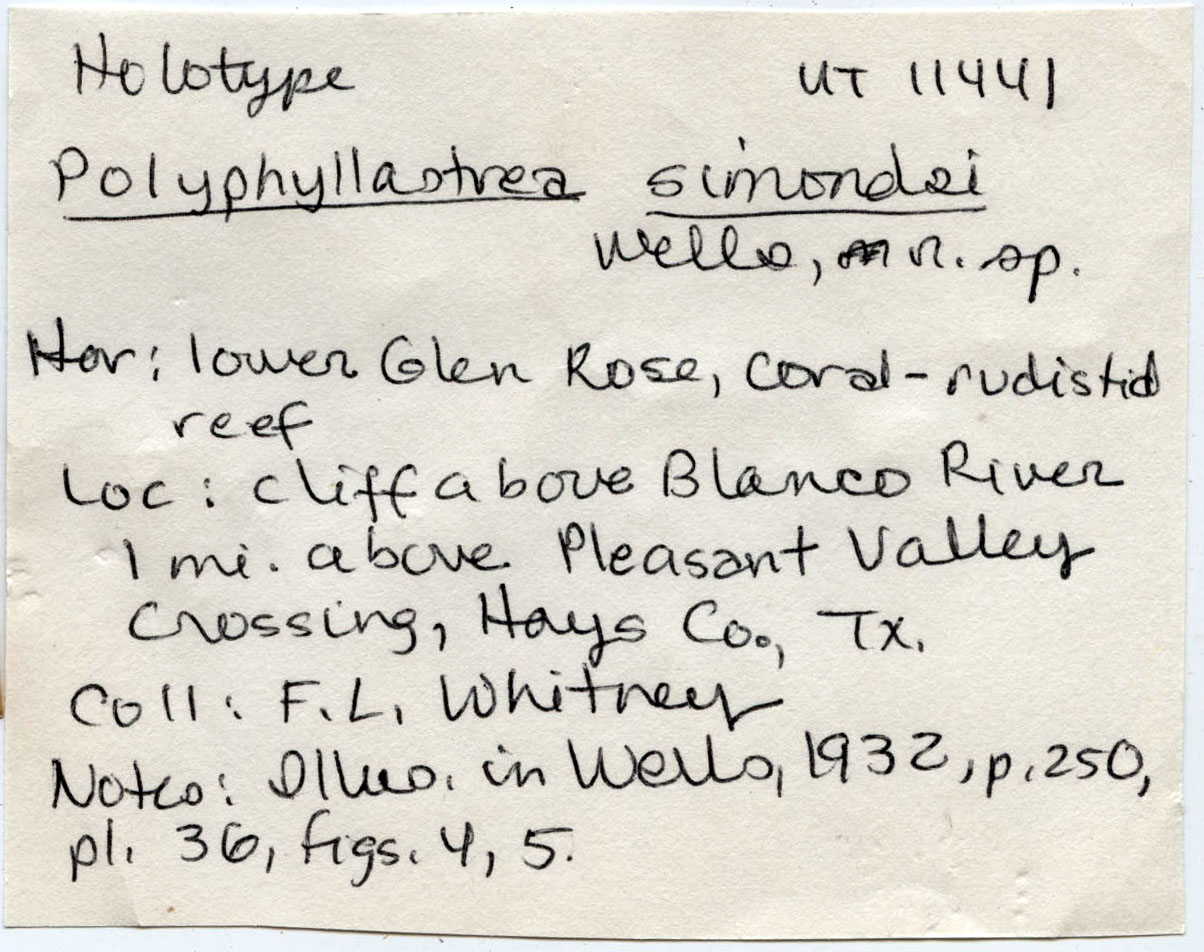 Holotype UT 11441
Polyphyllastrea simondsi
Wells, n. sp.
Hor: lower Glen Rose, coral-rudistid
reef
Loc: cliff above Blanco River
1 mi. above Pleasant Valley
Crossing, Hays Co., Tx.
Coll: F.L. Whitney
Notes: Illus. in Wells, 1932, p. 250,
pl. 36, figs. 4, 5.